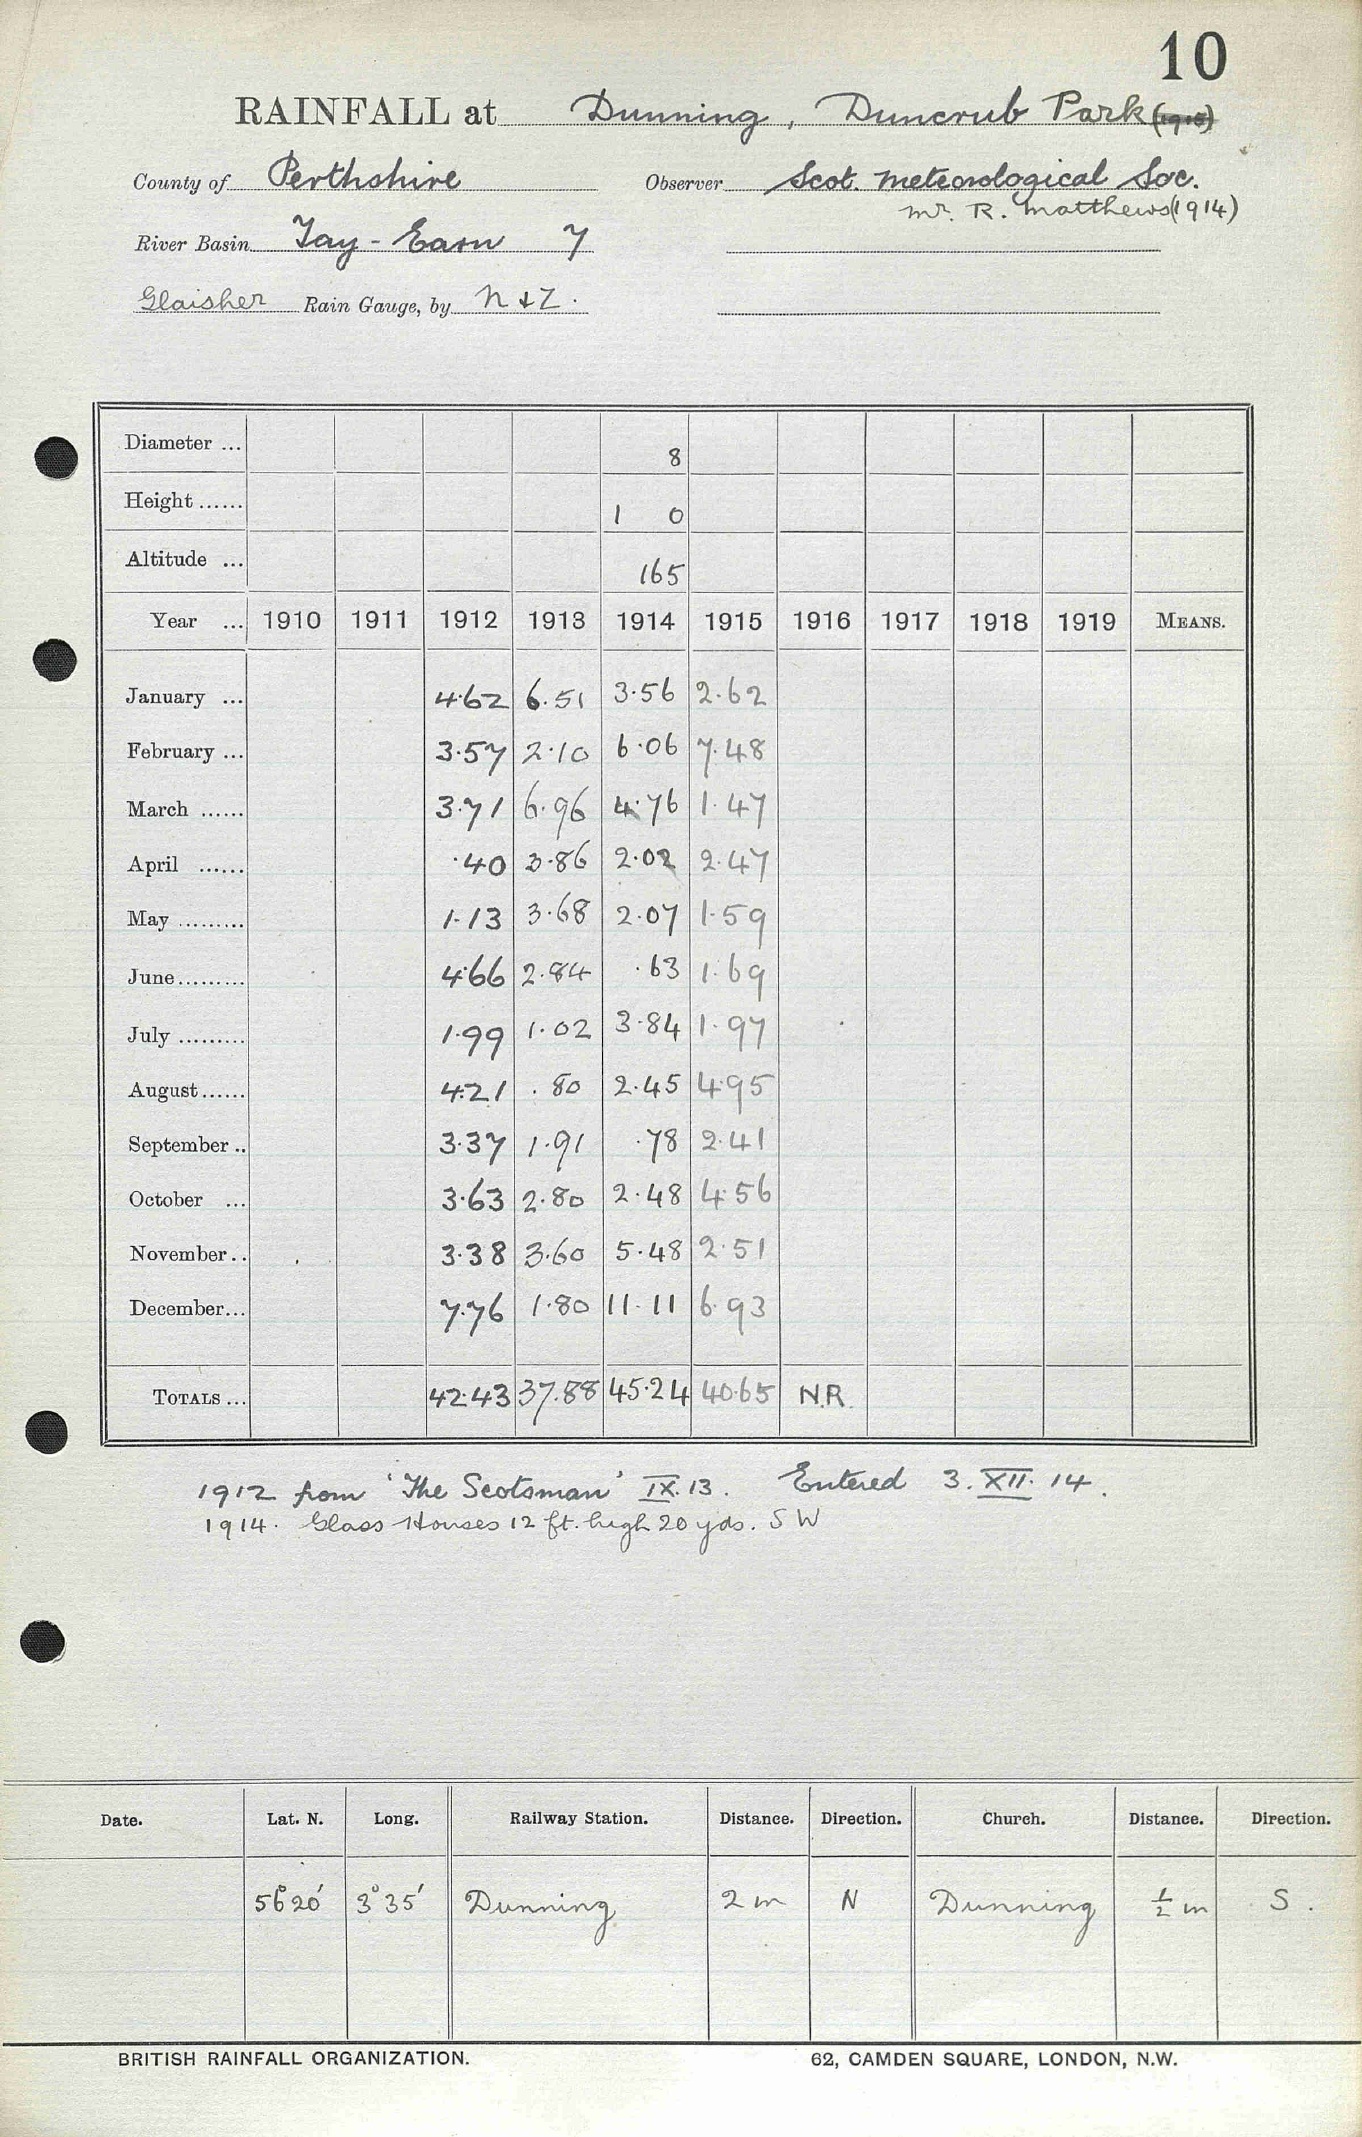 10
RAINFALL at Dunning, Duncrub Park (1915)
County of Perthshire Observer Scot. Meteorological Soc.
Mr. R. Matthews (1914)
River Basin Tay - Earn 7
Glaisher Rain Gauge, by N & Z.
Diameter ... 8
Height ...... 1 0
Altitude ... 165
Year ... 1910 1911 1912 1913 1914 1915 1916 1917 1918 1919 MEANS.
January ... 4.62 6.51 3.56 2.62
February ... 3.57 2.10 6.06 7.48
March ...... 3.71 6.96 4.76 1.47
April ...... .40 3.86 2.02 2.47
May ......... 1.13 3.68 2.07 1.59
June......... 4.66 2.84 .63 1.69
July ......... 1.99 1.02 3.84 1.97
August...... 4.21 .80 2.45 4.95
September .. 3.37 1.91 .78 2.41
October ... 3.63 2.80 2.48 4.56
November.. 3.38 3.60 5.48 2.51
December... 7.76 1.80 11.11 6.93
TOTALS ... 42.43 37.88 45.24 40.65 N.R.
1912 from 'The Scotsman' IX.13. Entered 3.XII.14.
1914. Glass Houses 12 ft. high 20 yds. SW
Date. Lat. N. Long. Railway Station. Distance. Direction. Church. Distance. Direction.
56°20' 3°35' Dunning 2 m N Dunning ½ m S.
BRITISH RAINFALL ORGANIZATION. 62, CAMDEN SQUARE, LONDON, N.W.